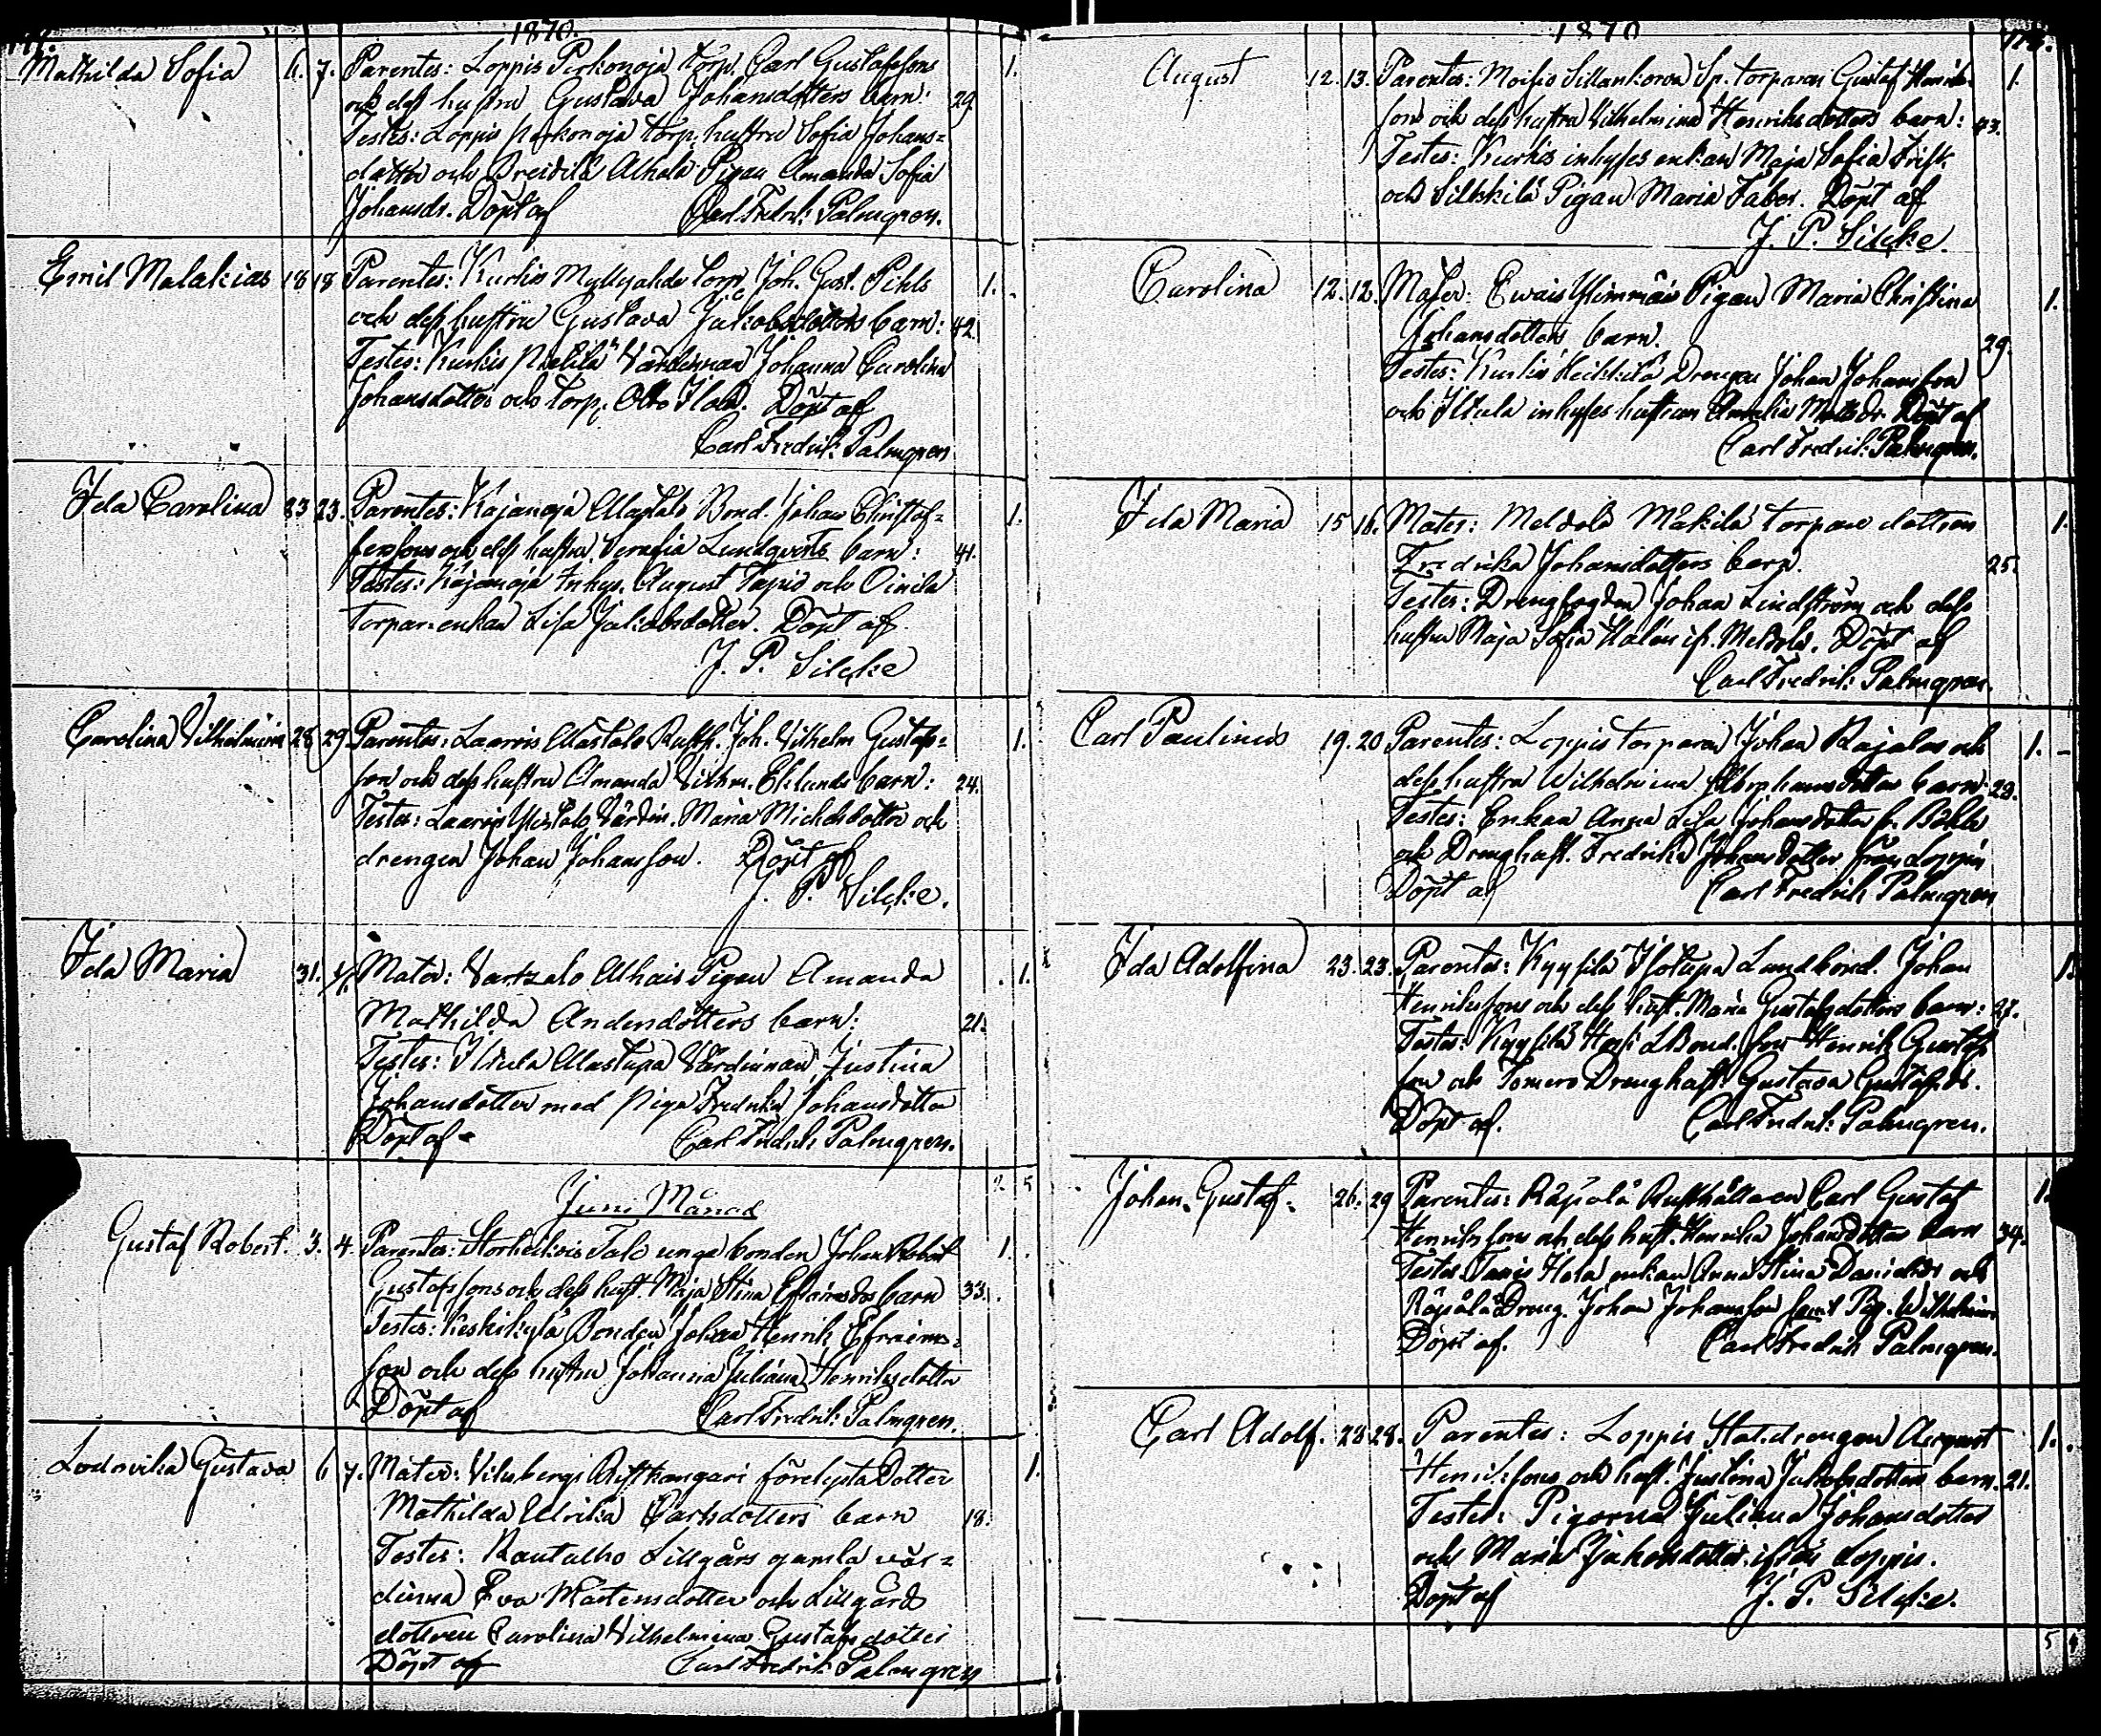 1870.
Mathilda Sofia 6. 7. Parentes: Loppis Perkonoja torp. Carl Gustafssons 1.
och dess hustru Gustava Johansdotters barn: 29
Testes: Loppis Perkonoja torp. hustru Sofia Johans=
dotter och Alhola Pigan Amanda Sofia
Johansdr. Döpt af Carl Fredrik Palmgren.
Emil Malakias 18 18 Parentes: Kurkis torp. Joh. Gust. Pihls 1.
och dess hustru Gustava Jakobsdotters barn: 42.
Testes: Kurkis Värdinnan Johanna Carolina
Johansdotter och torp. Otto Döpt af
Carl Fredrik Palmgren
Ida Carolina 23 23. Parentes: Kajanoja Alastalo Bond. Johan Christof= 1.
fersons och dess hustru Serafia Lundqvists barn: 41.
Testes: Kajanoja Inhys. August Tapio och Oinila
torpar.enkan Lisa Jakobsdotter. Döpt af
J. P. Silcke
Carolina Vilhelmina 28 29 Parentes: Laaris Alastalo Rusth. Joh. Vilhelm Gustafs= 1.
son och dess hustru Amanda Vilhm. Eklunds barn: 24.
Testes: Laaris Värdin. Maria Michelsdotter och
drengen Johan Johansson. Döpt af
J. P. Silcke.
Ida Maria 31. Mater: Vartsalo Alhais Pigan Amanda 1.
Mathilda Andersdotters barn: 21.
Testes: Iltula Alastupa Värdinnan Justina
Johansdotter med piga Fredrika Johansdotter
Döpt af Carl Fredrik Palmgren.
2 5
Juni Månad
Gustaf Robert. 3. 4. Parentes: Storheikois Talo unga bonden Johan Robert 1.
Gustafssons och dess hust. Maja Stina Efraimsdr barn 33.
Testes: Keskikylä Bonden Johan Henrik Efraims=
son och dess hustru Johanna Juliana Henriksdotter
Döpt af Carl Fredrik: Palmgren.
Lodovika Gustava 6 7. Mater: Vilubergs dotter 1.
Mathilda Ulrika Carlsdotters barn 18.
Testes: Rautalho Lillgårs gamla vär=
dinna Eva Mårtensdotter och Lillgårds
dottren Carolina Vilhelmina Gustafsdotter
Döpt af Carl Fredrik Palmgren
1870
August 12. 13. Parentes: Moisio Sillankorva Sp. torparen Gustaf Henrik= 1.
sons och dess hustru Vilhelmina Henriksdotters barn: 43.
Testes: Kurkis inhyses enkan Maja Sofia Frisk
och Pigan Maria Faber. Döpt af
J. P. Silcke.
Carolina 12. 12. Mater: Pigan Maria Christina 1.
Johansdotters barn. 29.
Testes: Kurkis Heikkilä Drengen Johan Johansson
och Iltula inhyses hustrun Amalia Matsdr. Döpt af
Carl Fredrik: Palmgren.
Ida Maria 15 16. Mater: Meldola Mäkilä torpare dottren 1.
Fredrika Johansdotters barn. 25.
Testes: Drengfogden Johan Lindström och dess
hustru Maja Sofia ifr. Meldola. Döpt af
Carl Fredrik: Palmgren.
Carl Paulinus 19. 20 Parentes: Loppis torparen Johan Rajalas och 1.
dess hustru Wilhelmina barn: 23.
Testes: Enkan Anna Lisa Johansdotter fr.
och Drenghust. Fredrika Johansdotter från Loppis
Döpt af Carl Fredrik Palmgren
Ida Adolfina 23. 23. Parentes: Kyysilä Isotupa Landbönd. Johan 1.
Henrikssons och dess hust. Maria Gustafsdotters barn: 27.
Testes: Kyysilä LBond. son Henrik Gustafs
son och Drenghust. Gustava Gustafsdr.
Döpt af. Carl Fredrik: Palmgren.
Johan Gustaf. 26. 29 Parentes: Räpälä Rusthållaren Carl Gustaf 1.
Henrikssons och dess hust. Henrika Johansdotters barn 34.
Testes: enkan Anna Stina Danielsdr och
Räpälä Dreng. Johan Johansson samt Pig. Wilhelmina
Döpt af. Carl Fredrik Palmgren.
Carl Adolf. 28 28. Parentes: Loppis Stat.drengen August 1.
Henrikssons och hust. Justina Jakobsdotters barn. 21.
Testes: Pigorna Juliana Johansdotter
och Maria Jakobsdotter ifrån Loppis.
Döpt af J. P. Silcke.
5